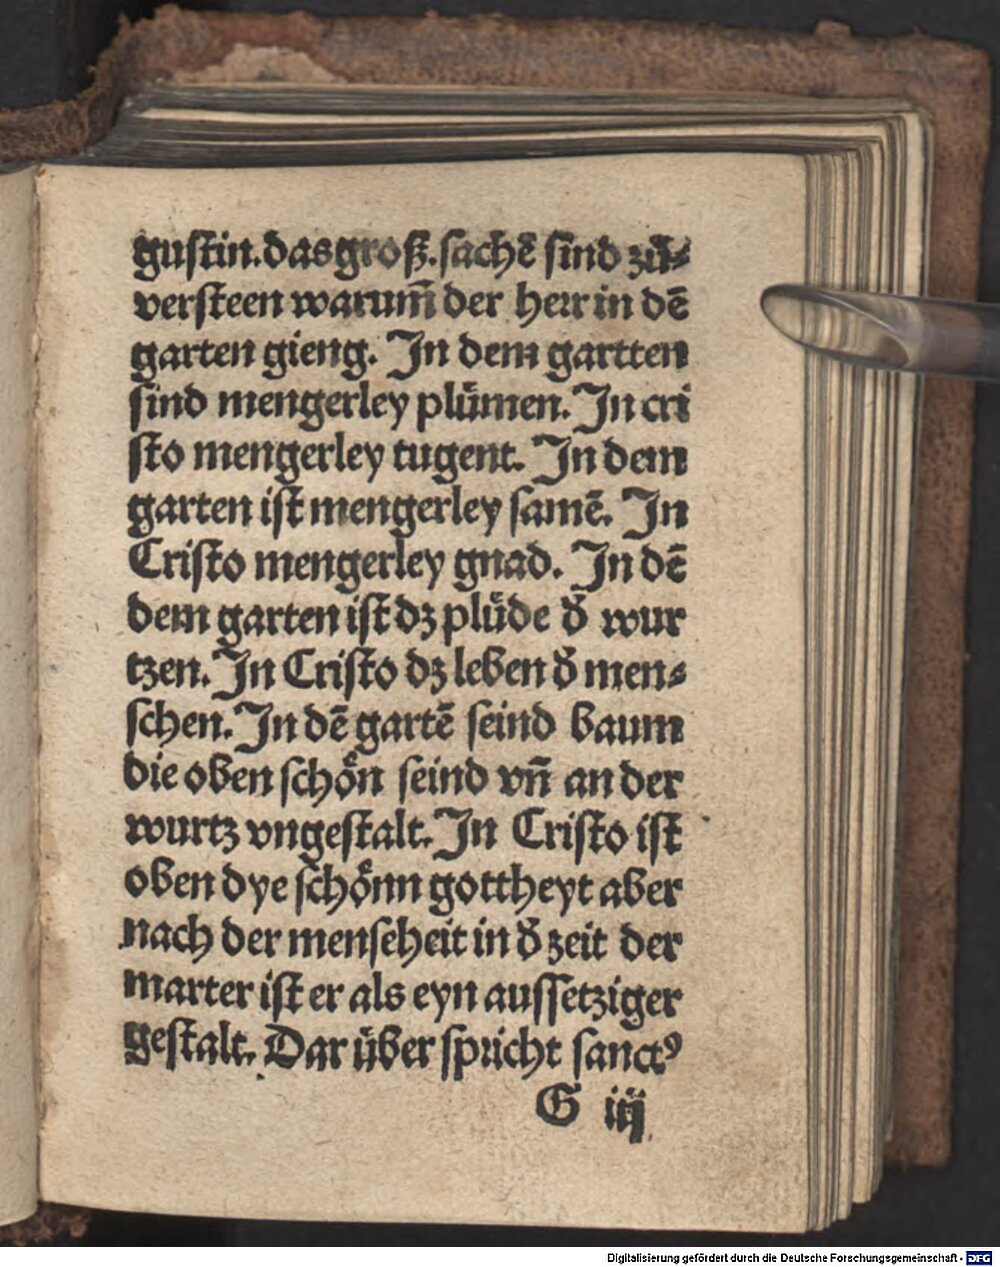 gustin. das groß. sachē sind zů⸗
versteen warum̄ der herr in dē
garten gieng. In dem gartten
sind mengerley plůmen. In cri
sto mengerley tugent. In dem
garten ist mengerley samē. In
Cristo mengerley gnad. In dē
dem garten ist dz plůde d̕ wur
tzen. In Cristo dz leben d̕ men⸗
schen. In dē gartē seind baum
die oben schön seind vn̄ an der
wurtz vngestalt. In Cristo ist
oben dye schönn gottheyt aber
nach der menseheit in d̕ zeit der
marter ist er als eyn aussetziger
gestalt. Dar über spricht sanctꝰ
G iij
Digitalisierung gefördert durch die Deutsche Forschungsgemeinschaft - DFG